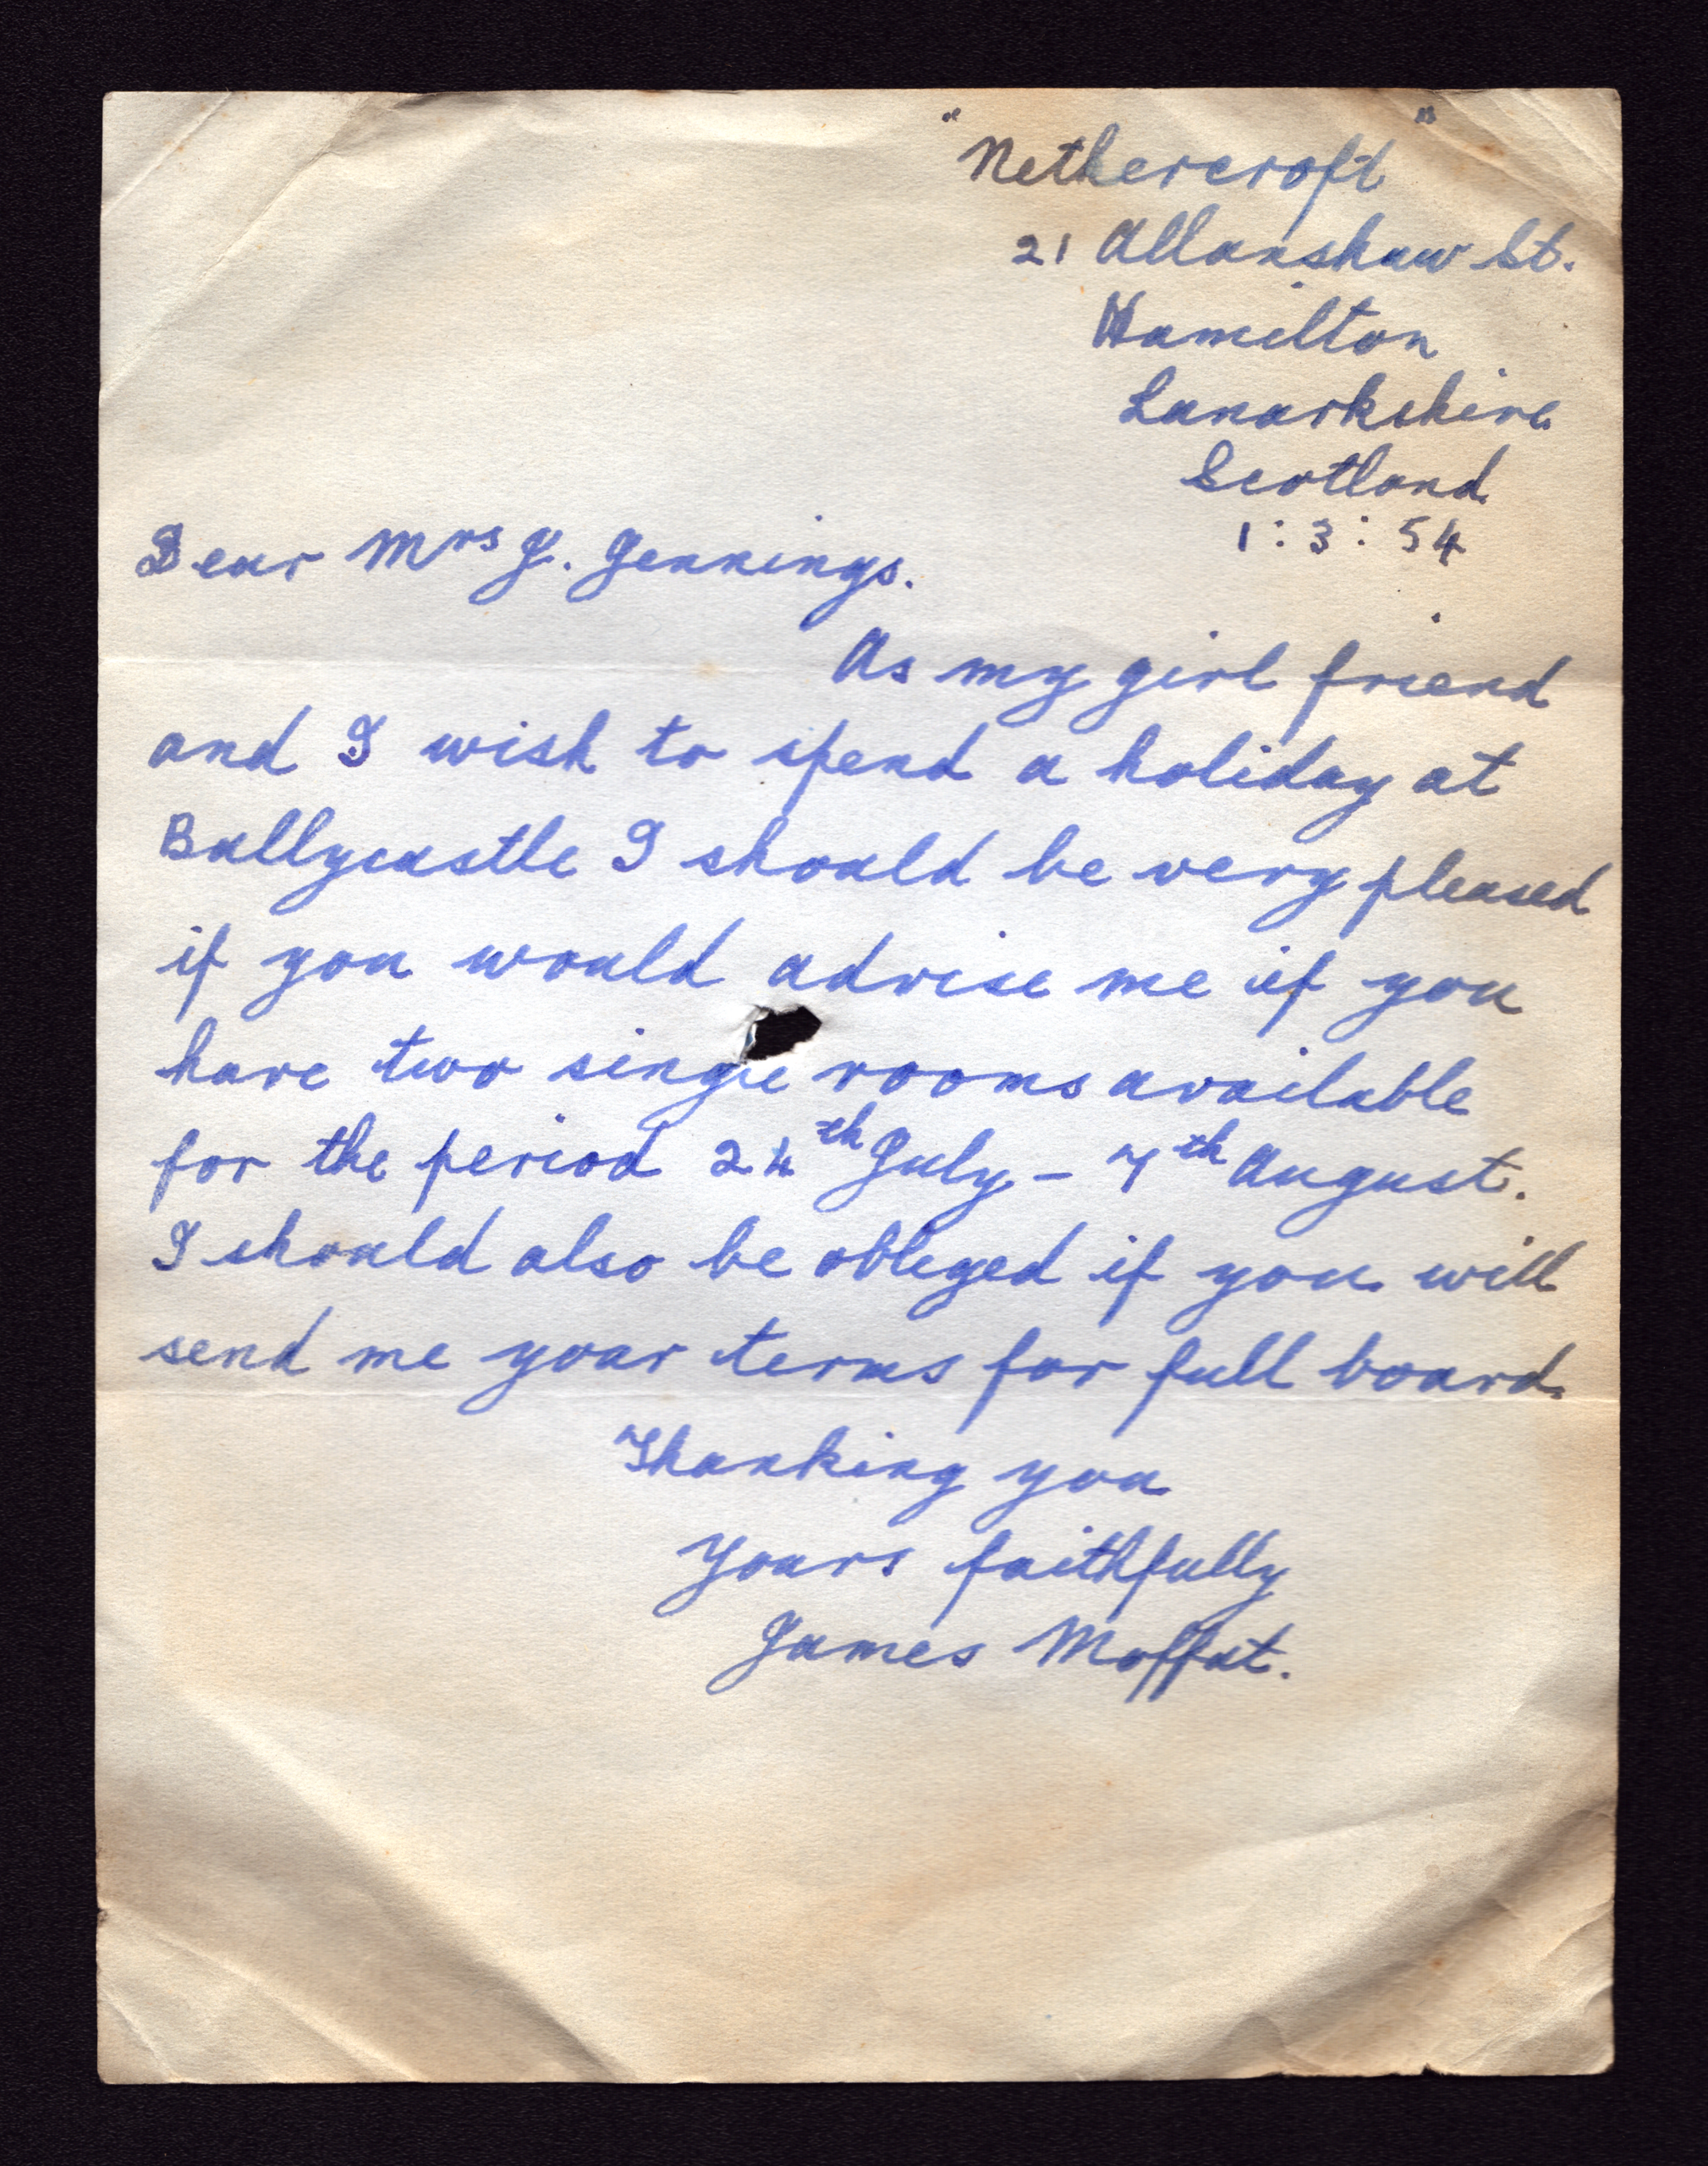 "Nethercroft"
21 Allanshaw St.
Hamilton
Lanarkshire
Scotland
1:3:54
Dear Mrs J. Jennings.
As my girl friend
and I wish to spend a holiday at
Ballycastle I should be very pleased
if you would advise me if you
have two single rooms available
for the period 24th July - 7th August.
I should also be obliged if you will
send me your terms for full board.
Thanking you
Yours faithfully
James Moffat.